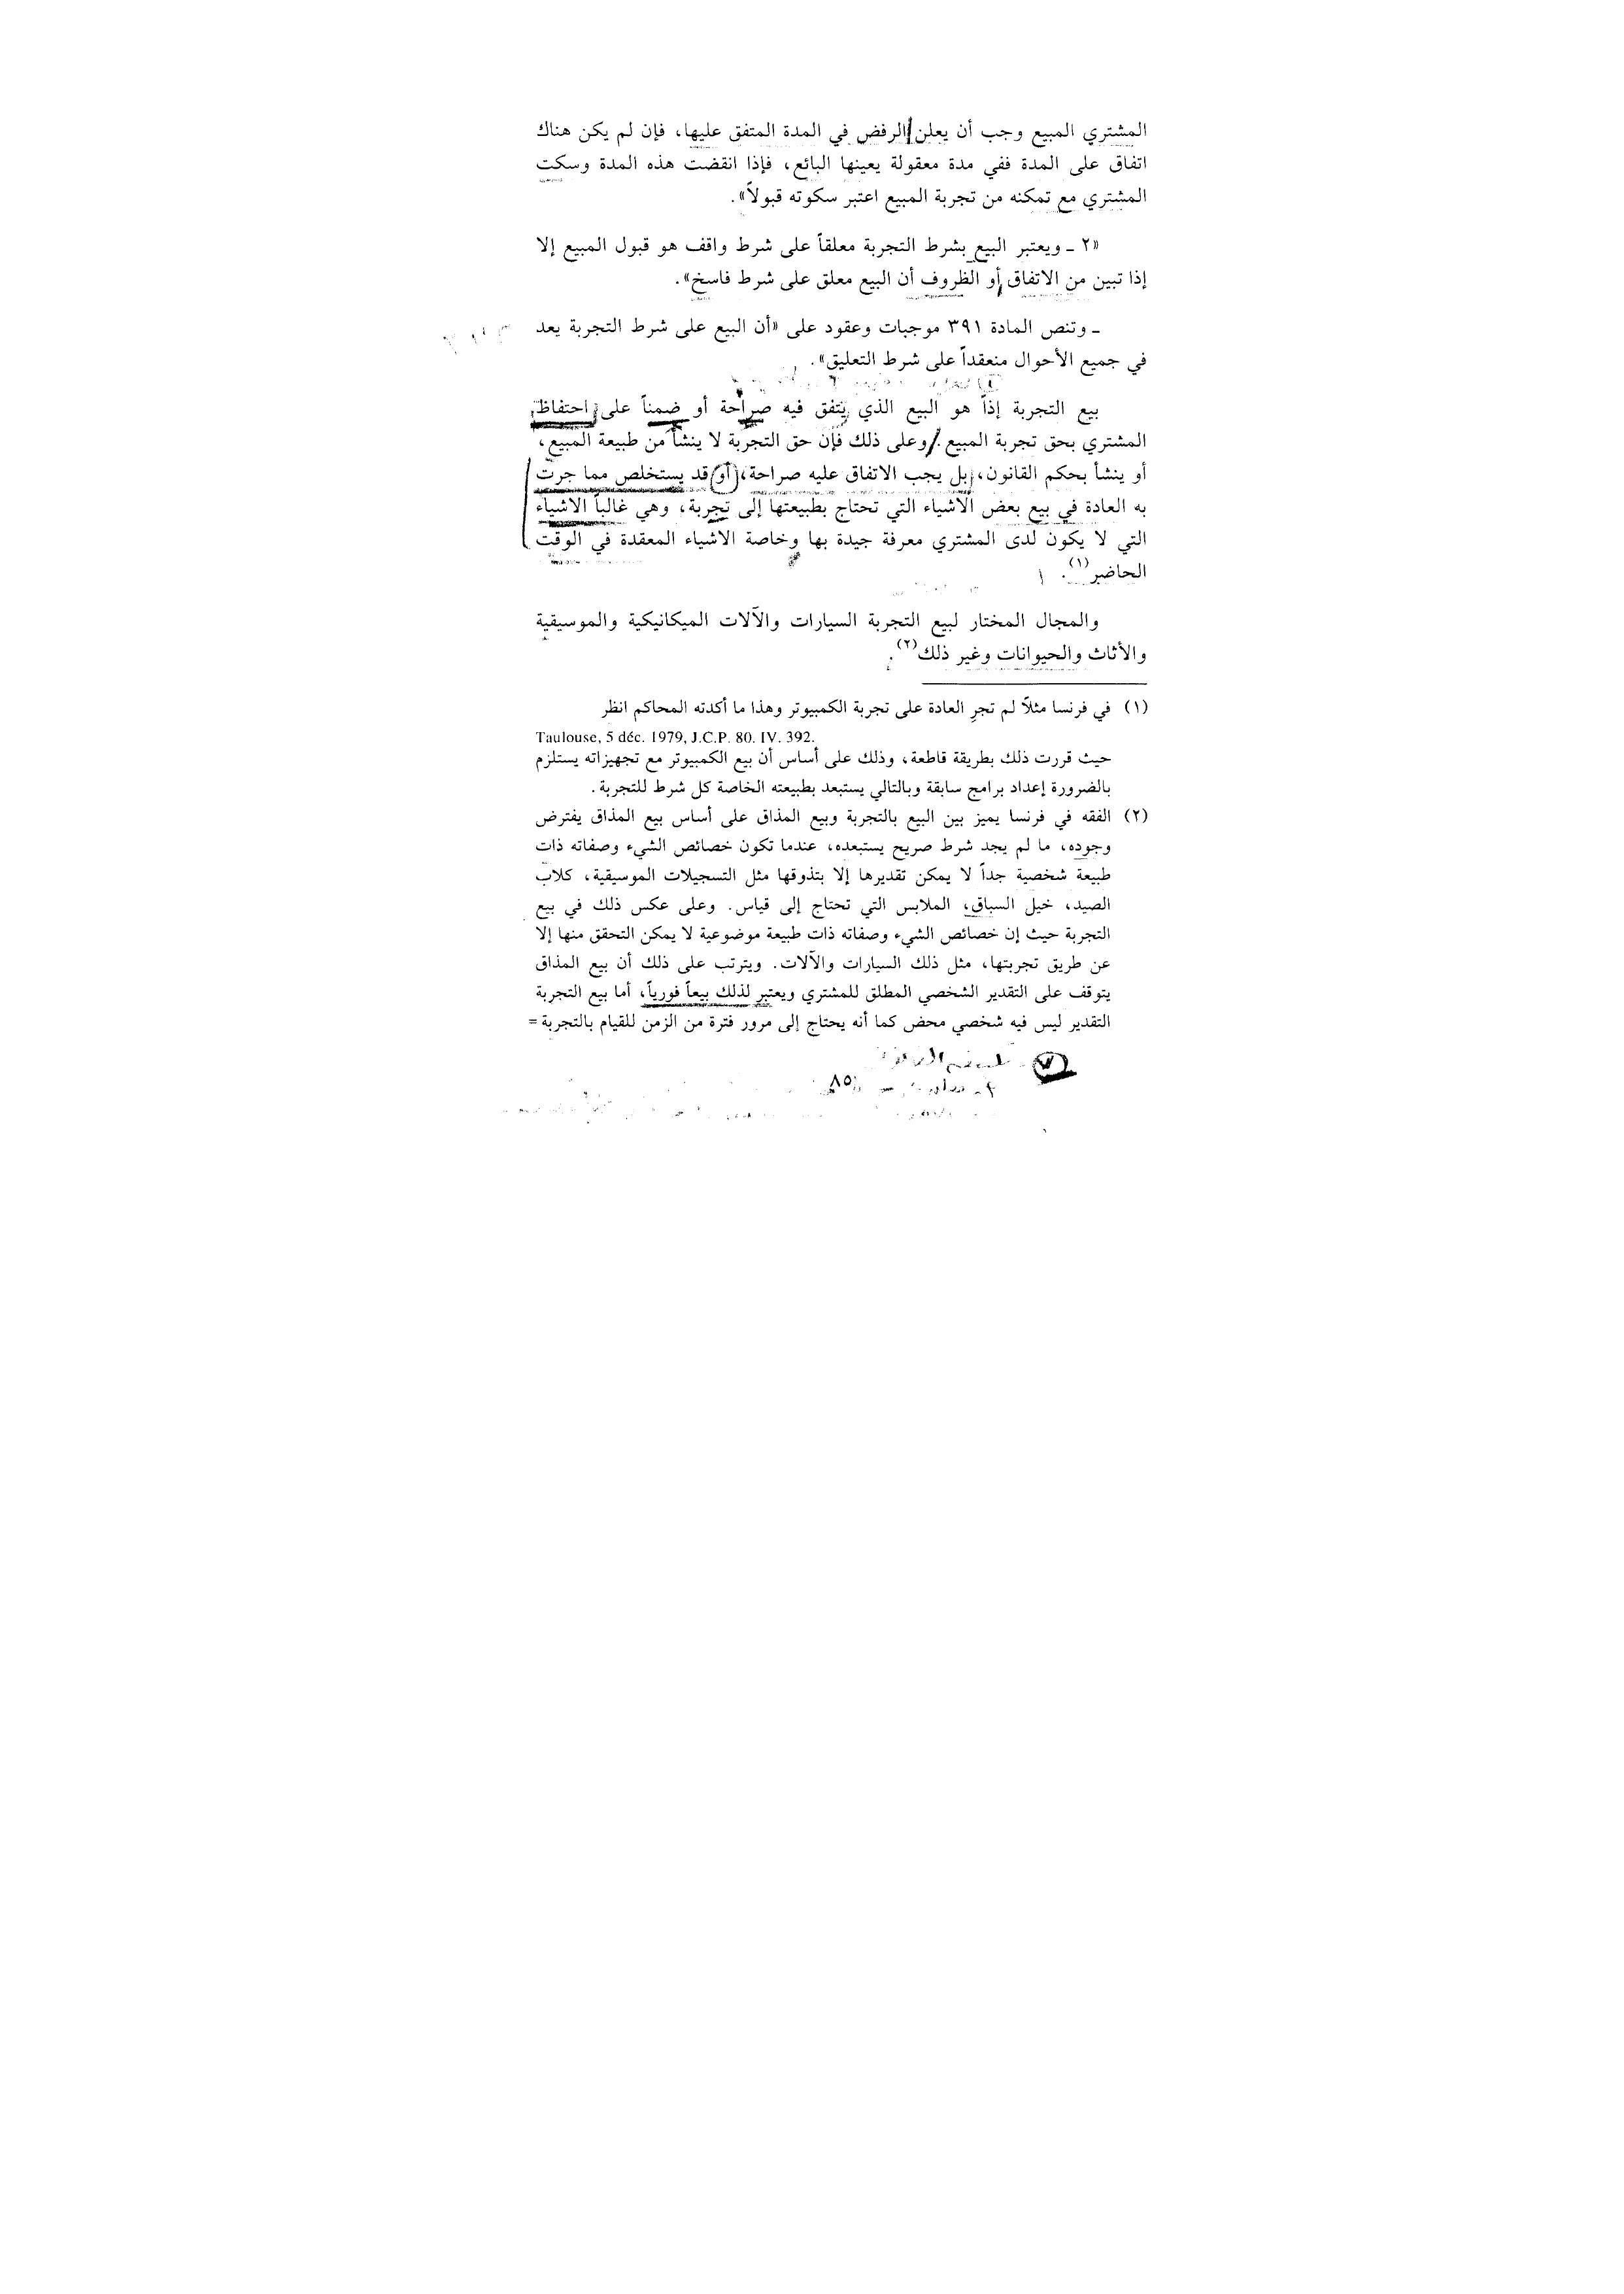 المشتري المبيع وجب أن يعلن الرفض في المدة المتفق عليها، فإن لم يكن هناك
اتفاق على المدة ففي مدة معقولة يعينها البائع، فإذا انقضت هذه المدة وسكت
المشتري مع تمكنه من تجربة المبيع اعتبر سكوته قبولاً».
«٢ ـ ويعتبر البيع بشرط التجربة معلقاً على شرط واقف هو قبول المبيع إلا
إذا تبين من الاتفاق أو الظروف أن البيع معلق على شرط فاسخ».
ـ وتنص المادة ٣٩١ موجبات وعقود على «أن البيع على شرط التجربة يعد
في جميع الأحوال منعقداً على شرط التعليق».
بيع التجربة إذاً هو البيع الذي يتفق فيه صراحة أو ضمناً على احتفاظ
المشتري بحق تجربة المبيع. وعلى ذلك فإن حق التجربة لا ينشأ من طبيعة المبيع،
أو ينشأ بحكم القانون، بل يجب الاتفاق عليه صراحة، أو قد يستخلص مما جرت
به العادة في بيع بعض الأشياء التي تحتاج بطبيعتها إلى تجربة، وهي غالباً الاشياء
التي لا يكون لدى المشتري معرفة جيدة بها وخاصة الاشياء المعقدة في الوقت
الحاضر(١).
والمجال المختار لبيع التجربة السيارات والآلات الميكانيكية والموسيقية
والأثاث والحيوانات وغير ذلك(٢).
(١) في فرنسا مثلاً لم تجرِ العادة على تجربة الكمبيوتر وهذا ما أكدته المحاكم انظر
Taulouse, 5 déc. 1979, J.C.P. 80. IV. 392.
حيث قررت ذلك بطريقة قاطعة، وذلك على أساس أن بيع الكمبيوتر مع تجهيزاته يستلزم
بالضرورة إعداد برامج سابقة وبالتالي يستبعد بطبيعته الخاصة كل شرط للتجربة.
(٢) الفقه في فرنسا يميز بين البيع بالتجربة وبيع المذاق على أساس بيع المذاق يفترض
وجوده، ما لم يجد شرط صريح يستبعده، عندما تكون خصائص الشيء وصفاته ذات
طبيعة شخصية جداً لا يمكن تقديرها إلا بتذوقها مثل التسجيلات الموسيقية، كلاب
الصيد، خيل السباق، الملابس التي تحتاج إلى قياس. وعلى عكس ذلك في بيع
التجربة حيث إن خصائص الشيء وصفاته ذات طبيعة موضوعية لا يمكن التحقق منها إلا
عن طريق تجربتها، مثل ذلك السيارات والآلات. ويترتب على ذلك أن بيع المذاق
يتوقف على التقدير الشخصي المطلق للمشتري ويعتبر لذلك بيعاً فورياً، أما بيع التجربة
التقدير ليس فيه شخصي محض كما أنه يحتاج إلى مرور فترة من الزمن للقيام بالتجربة =
٨٥